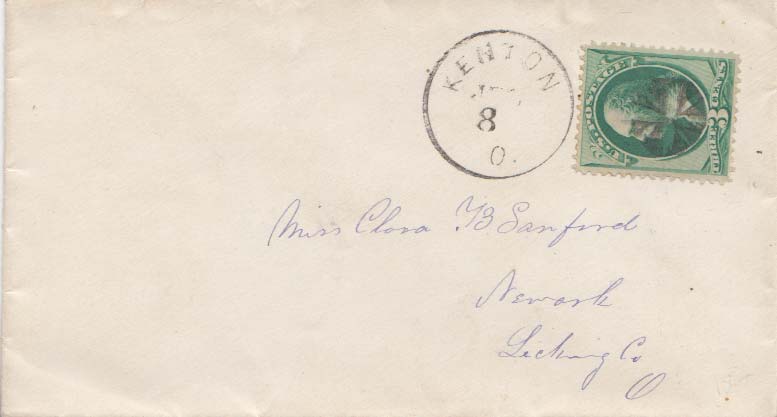 KENTON
8
O.
U.S. POSTAGE
3
Miss Clora B Sanford
Newark
Licking Co
O